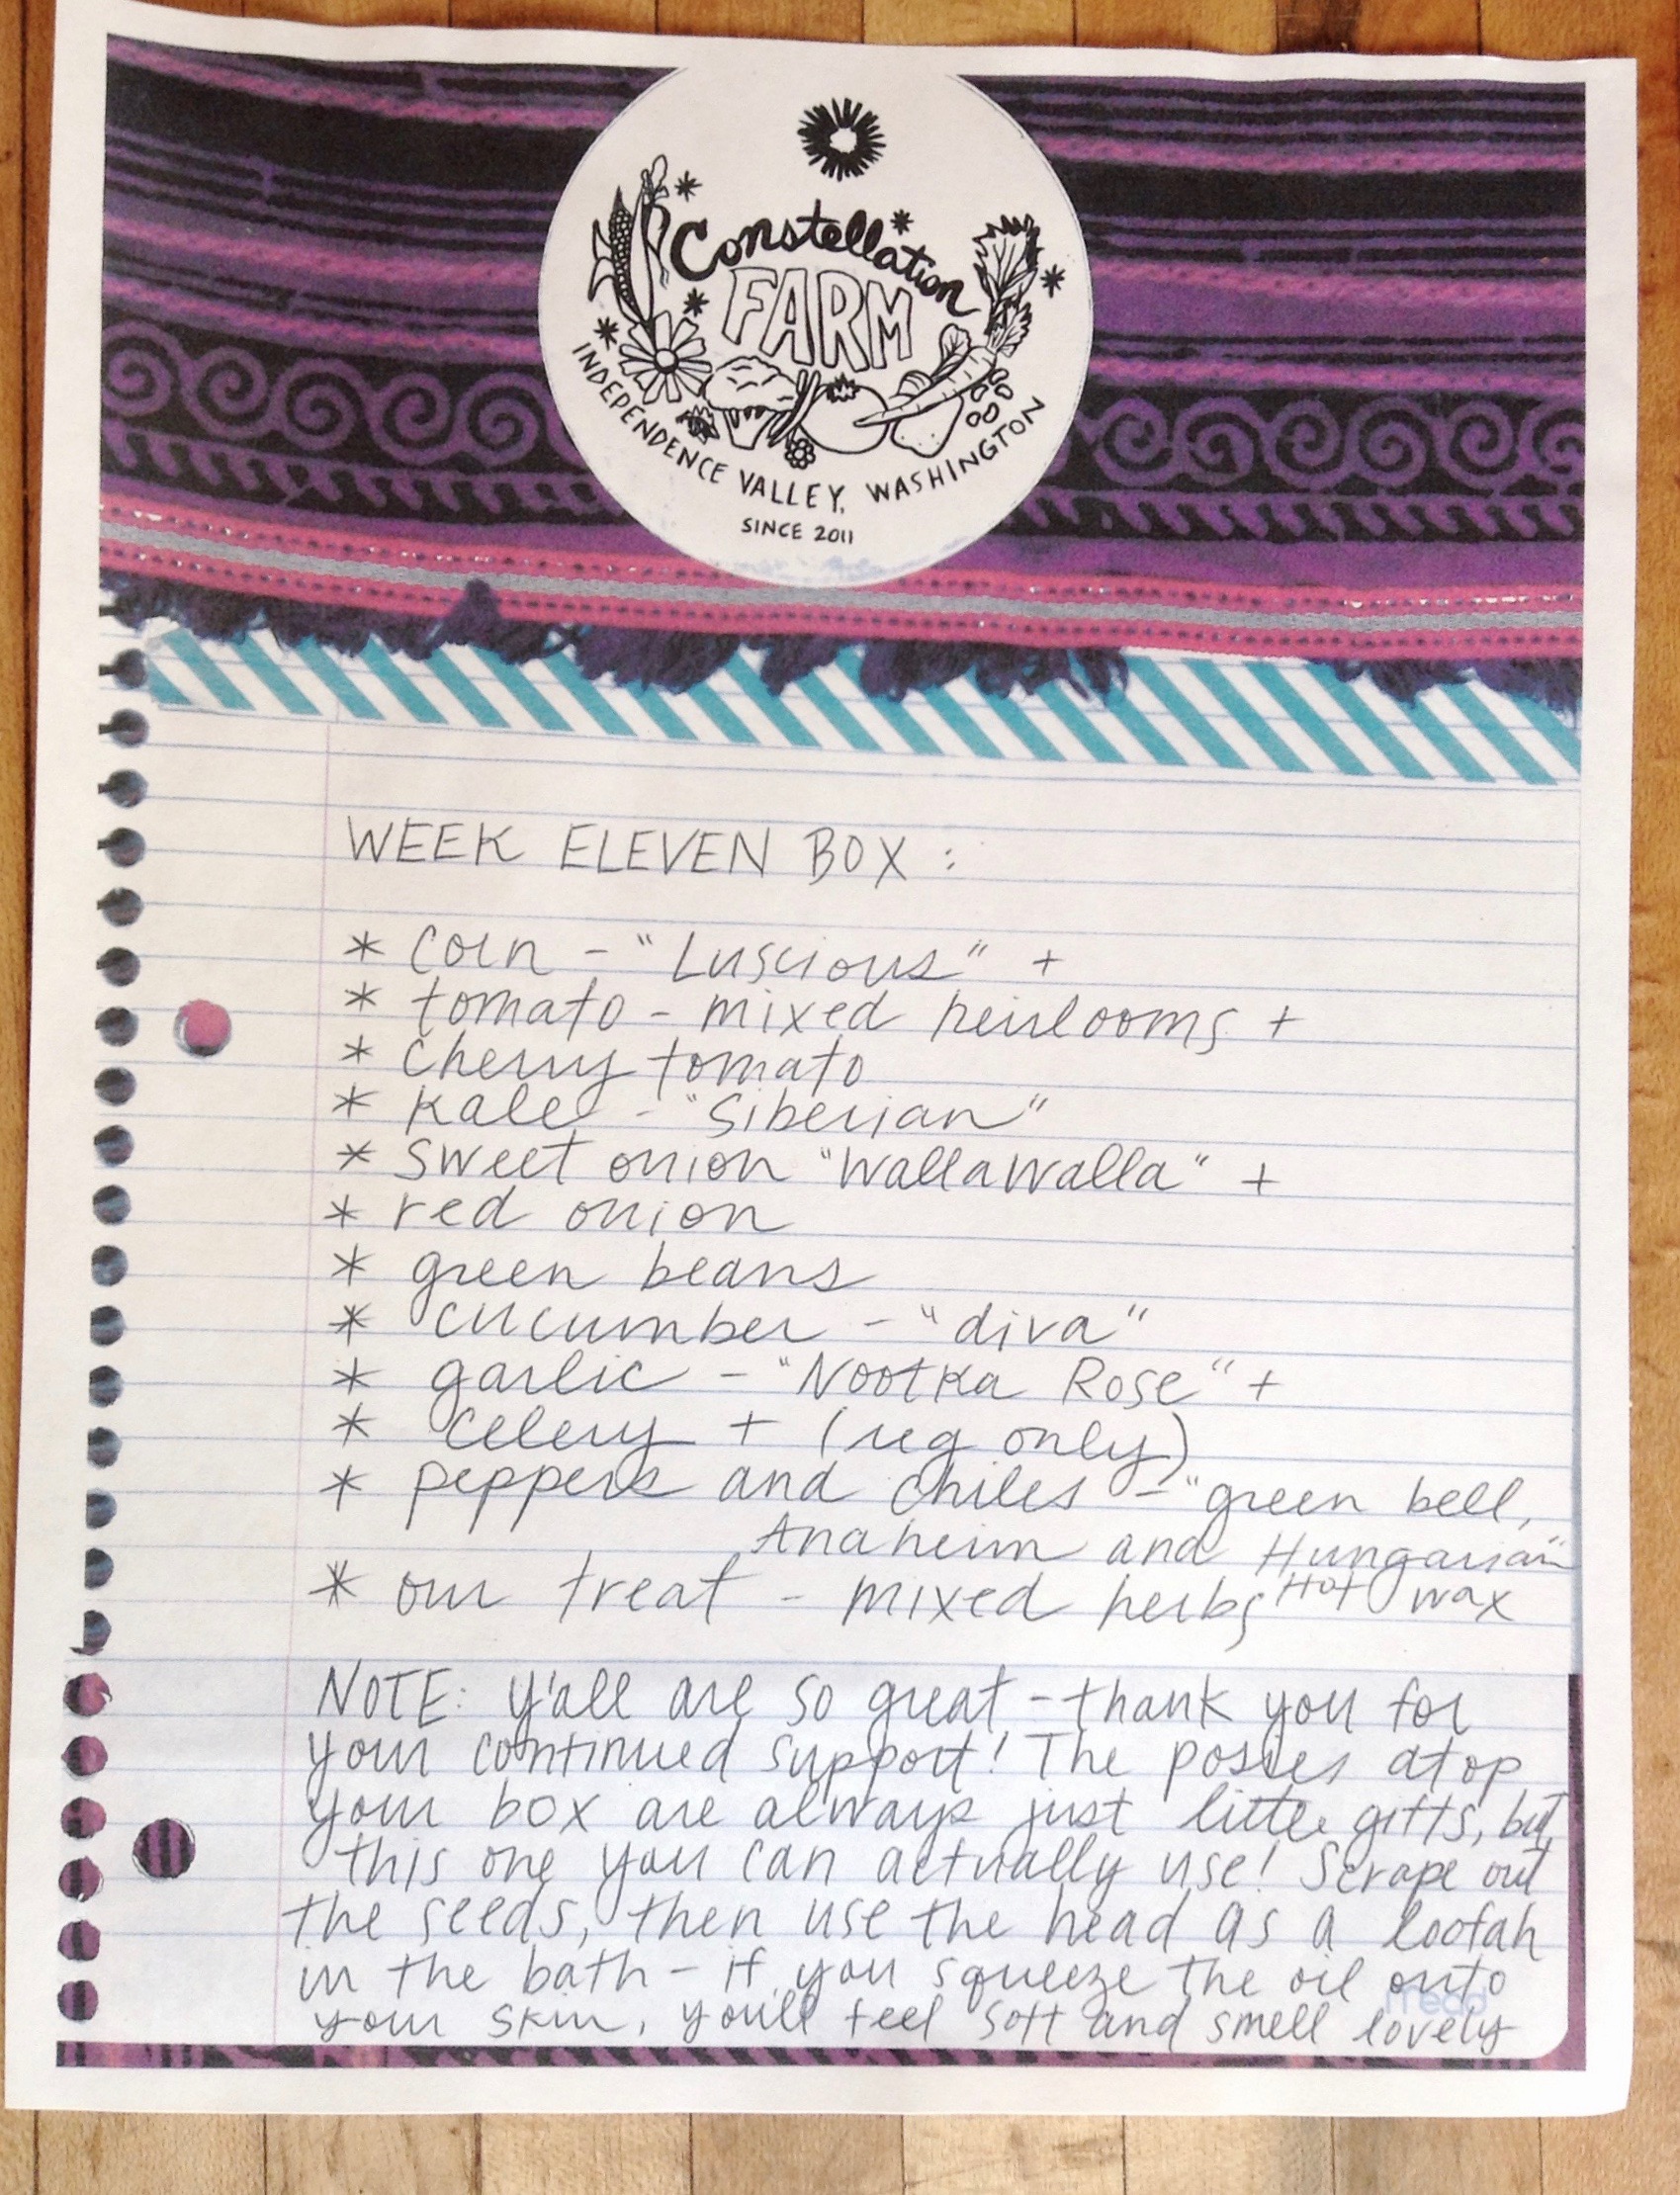 Constellation
FARM
INDEPENDENCE VALLEY, WASHINGTON
SINCE 2011
WEEK ELEVEN BOX :
* corn - "Luscious" +
* tomato - mixed heirlooms +
* cherry tomato
* kale - "Siberian"
* sweet onion "WallaWalla" +
* red onion
* green beans
* cucumber - "diva"
* garlic - "Nootka Rose" +
* celery + (reg only)
* peppers and chiles - "green bell,
Anaheim and Hungarian"
Hot wax
* our treat - mixed herbs
NOTE: y'all are so great - thank you for
your continued support! The posies atop
your box are always just little gifts, but
this one you can actually use! Scrape out
the seeds, then use the head as a loofah
in the bath - if you squeeze the oil onto
your skin, you'll feel soft and smell lovely
Mead